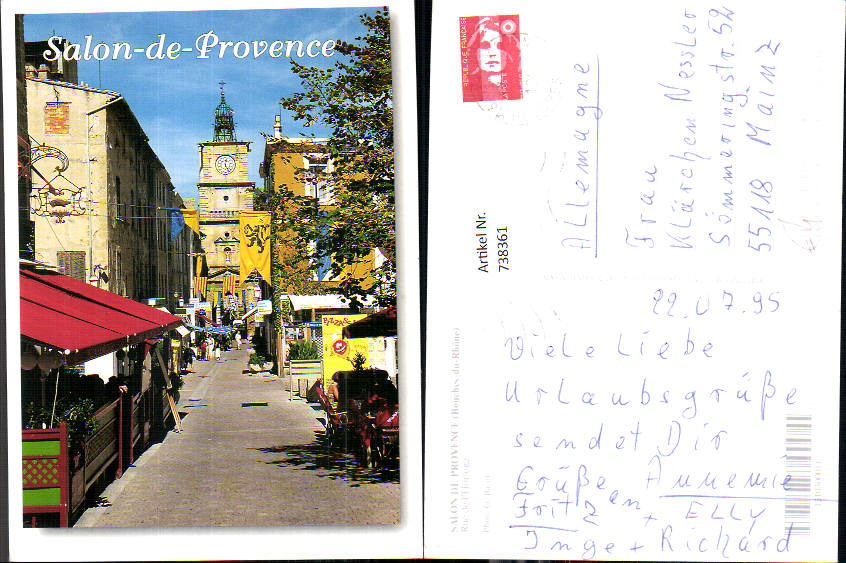 Salon-de-Provence
PIZZAS
REPUBLIQUE FRANÇAISE
LA POSTE
Allemagne
Frau
Klärchen Nessler
Sömmeringstr. 52
55118 Mainz
Artikel Nr.
738361
22.07.95
Viele Liebe
Urlaubsgrüße
sendet Dir
Grüße an Annemie
Fritz + ELLY
Inge + Richard
SALON DE PROVENCE (Bouches-du-Rhône)